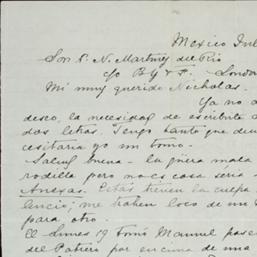 Mexico
Sor. P. N. Martinez del Rio
c/o B y F. London
Mi muy querido Nicholas.
Ya no
deseo, la necesidad de escribirte
dos letras. Tengo tanto que
cesitaria yo un tomo.
Salud buena - la güera mala
rodilla pero no es cosa seria -
Anexas. Estás tienen la culpa
lencio; me traken loco de un
para otro.
El Lunes 19 tomó Manuel
del Potrero por encima de una